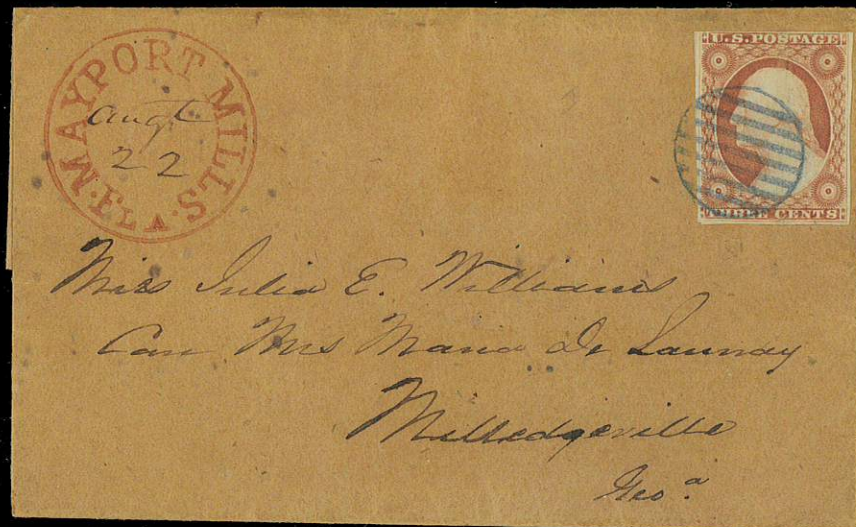 MAYPORT MILLS. Fla.
Augt
22
U.S. POSTAGE
THREE CENTS
Miss Julia E. Williams
Care Mrs Maria De Launay
Milledgeville
Geo.a